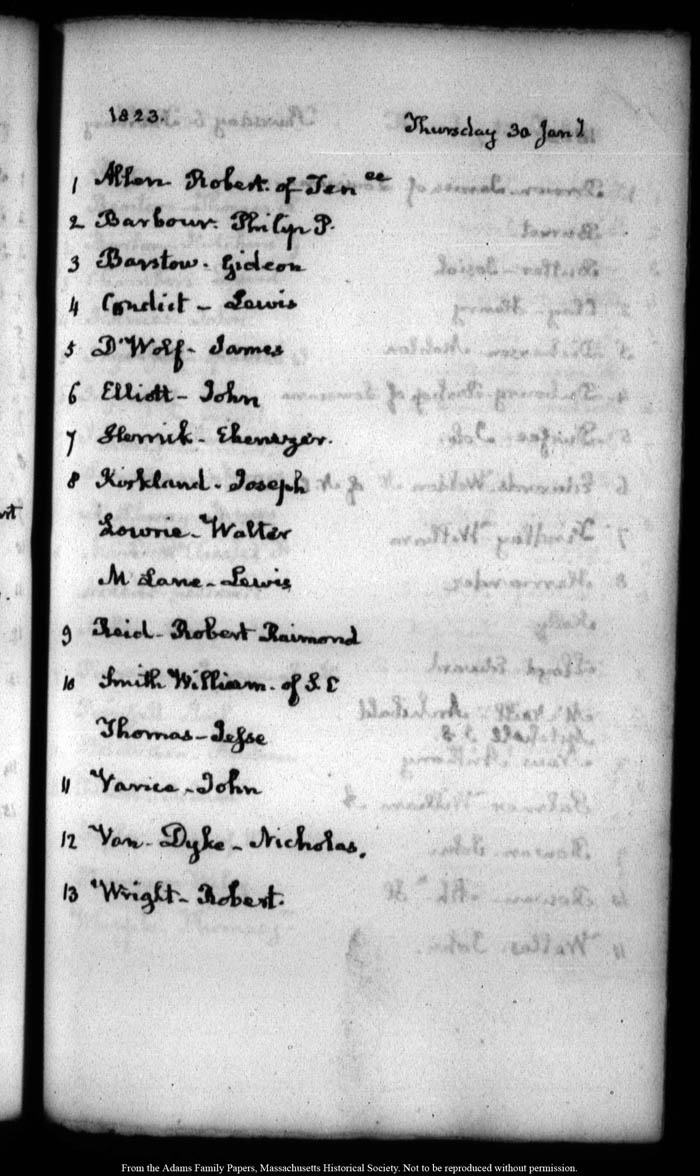 1823.
Thursday 30 Jany
1 Allen Robert of Tenee
2 Barbour. Philip P.
3 Barstow. Gideon
4 Condict - Lewis
5 D'Wolf - James
6 Elliott - John
7 Herrick - Ebenezer.
8 Kirkland - Joseph
Lowrie - Walter
McLane - Lewis
9 Reid - Robert Raimond
10 Smith William - of S C
Thomas - Jesse
11 Vance - John
12 Van - Dyke - Nicholas.
13 Wright - Robert.
From the Adams Family Papers, Massachusetts Historical Society. Not to be reproduced without permission.